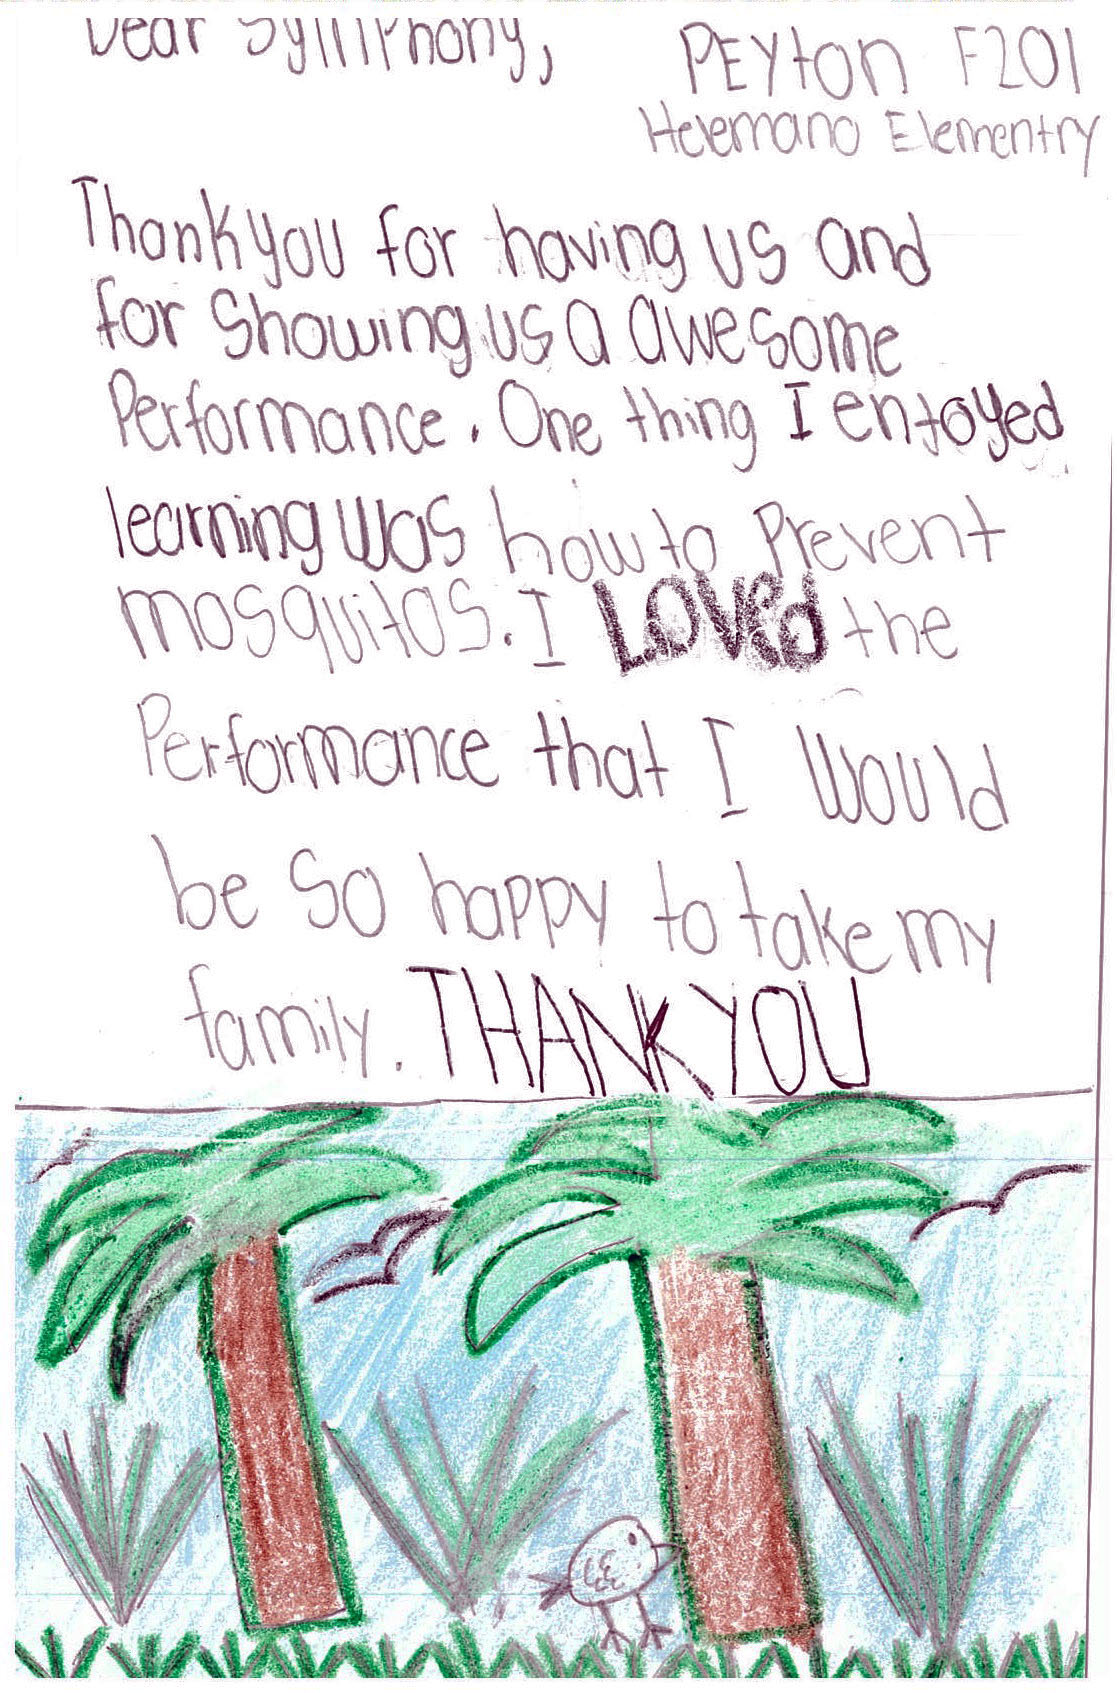 Dear Symphony,
PEYton F201
Helemano Elementry
Thank you for having us and
for Showing us a awesome
Performance. One thing I enjoyed
learning was how to Prevent
mosquitos. I LOVED the
Performance that I Would
be So happy to take my
family. THANK YOU